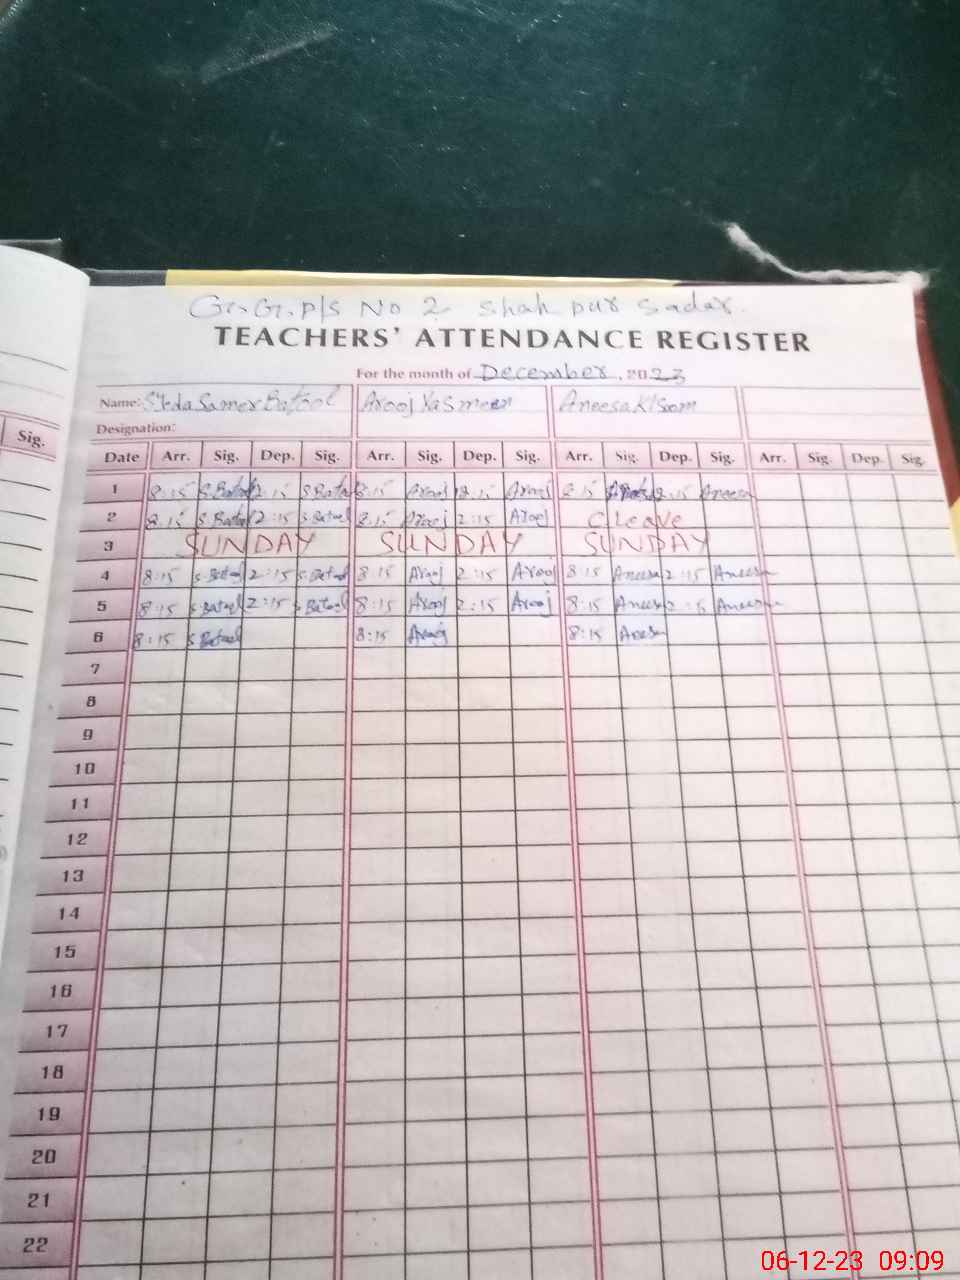 G.G.P/S No 2 Shah pur Sadar.
TEACHERS' ATTENDANCE REGISTER
For the month of December, 2023
Name: Batool Arooj Yasmeen Aneesa
Designation:
Sig.
Date Arr. Sig. Dep. Sig. Arr. Sig. Dep. Sig. Arr. Sig. Dep. Sig. Arr. Sig. Dep. Sig.
1 8:15 S.Batool 12:15 S.Batool 8:15 Arooj 12:15 Arooj 8:15 12:15 Aneesa
2 8:15 S.Batool 12:15 S.Batool 8:15 Arooj 2:15 Arooj C Leave
3 SUNDAY SUNDAY SUNDAY
4 8:15 S.Batool 2:15 S.Batool 8:15 Arooj 2:15 Arooj 8:15 Aneesa 2:15 Aneesa
5 8:15 S.Batool 2:15 S.Batool 8:15 Arooj 2:15 Arooj 8:15 Aneesa 2:15 Aneesa
6 8:15 S.Batool 8:15 Arooj 8:15 Aneesa
7
8
9
10
11
12
13
14
15
16
17
18
19
20
21
22
06-12-23 09:09